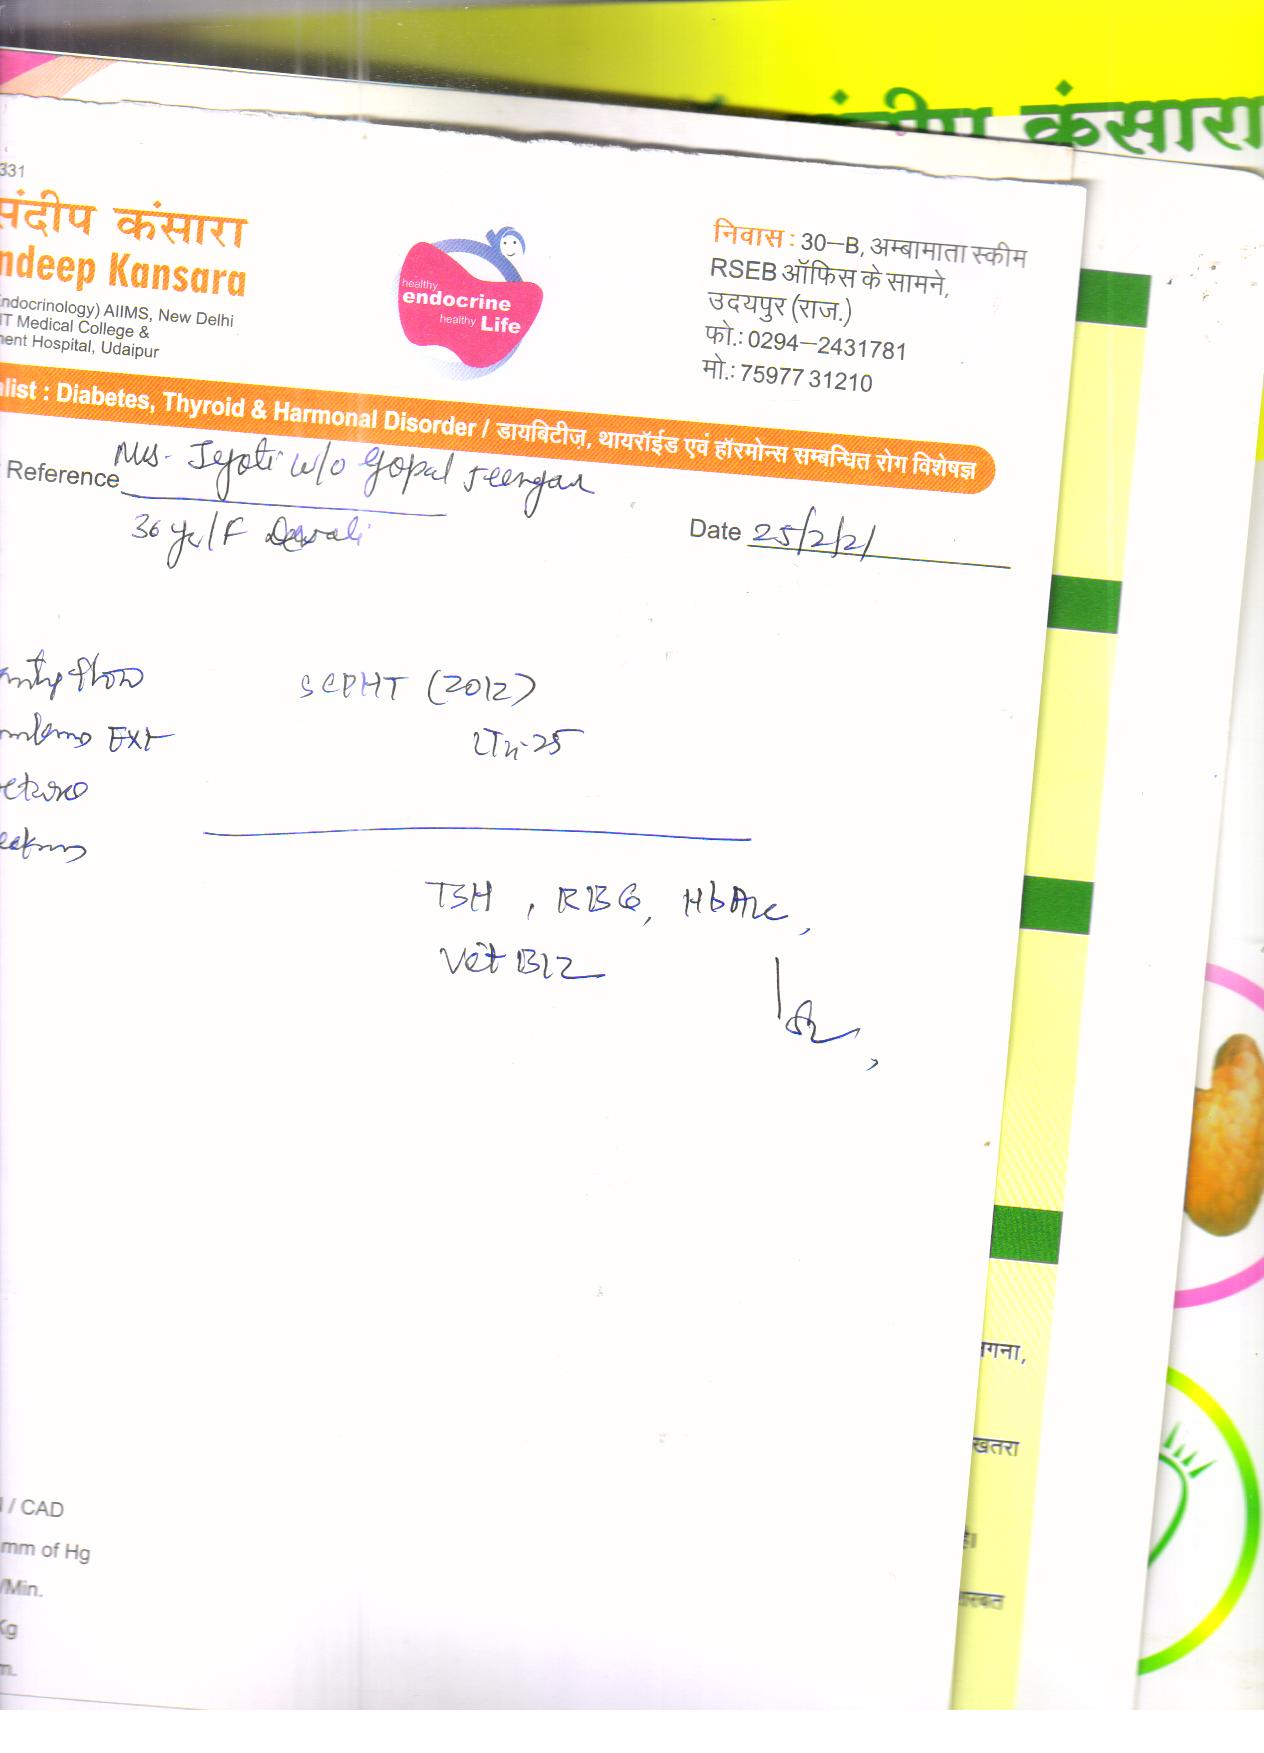 संदीप कंसारा
331
संदीप कंसारा
ndeep Kansara
ndocrinology) AIIMS, New Delhi
T Medical College &
ment Hospital, Udaipur
healthy
endocrine
healthy Life
निवास : 30–B, अम्बामाता स्कीम
RSEB ऑफिस के सामने,
उदयपुर (राज.)
फो.: 0294–2431781
मो.: 75977 31210
list : Diabetes, Thyroid & Harmonal Disorder / डायबिटीज़, थायरॉईड एवं हॉरमोन्स सम्बन्धित रोग विशेषज्ञ
Reference Mrs. Jyoti w/o Gopal Jeengar
36 yr/F
Date 25/2/21
SCPHT (2012)
EXT
TSH , RBG, HbA1c,
Vit B12
गना,
खतरा
है।
/ CAD
mm of Hg
/Min.
Kg
m.